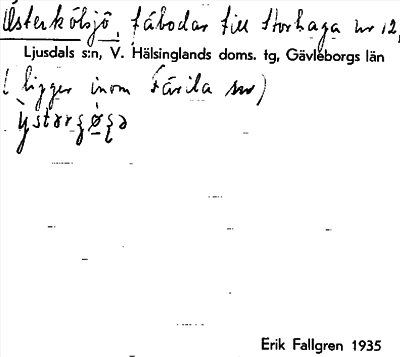 Österkölsjö, fäbodar till Storhaga nr 12,
Ljusdals s:n, V. Hälsinglands doms. tg, Gävleborgs län
(ligger inom Färila sn)
Erik Fallgren 1935